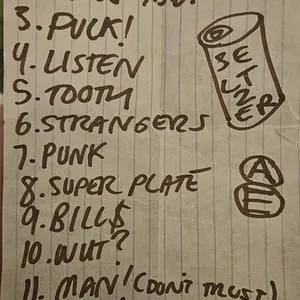 3. PUCK!
4. LISTEN
5. TOOTH
6. STRANGERS
7. PUNK
8. SUPER PLATE
9. BILL$
10. WUT?
11. MAN! (DON'T TRUST)
SELTZER
A
E